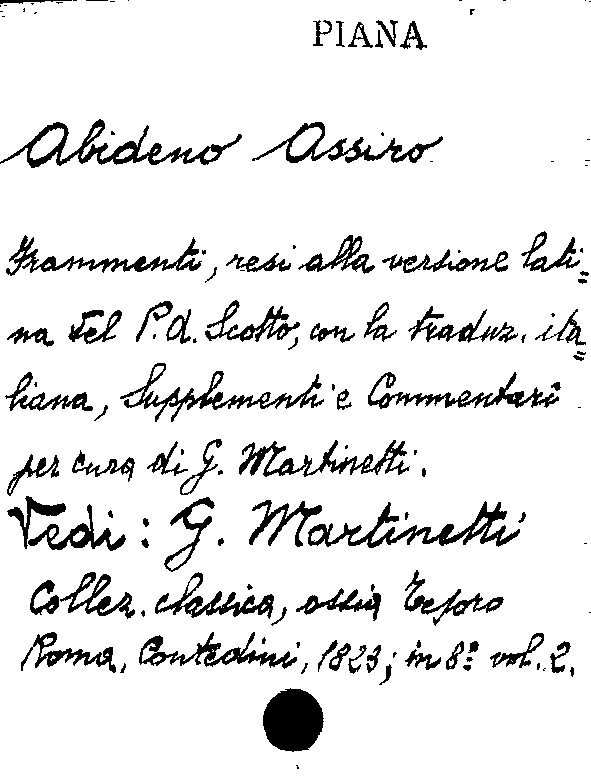 PIANA
Abideno Assiro
Frammenti, resi alla versione lati=
na del P. A. Scotto, con la traduz. ita
liana, Supplementi e Commentari
per cura di G. Martinetti.
Vedi: G. Martinetti
Collez. classica, ossia Tesoro
Roma, Contedini, 1823; in 8º vol. 2.